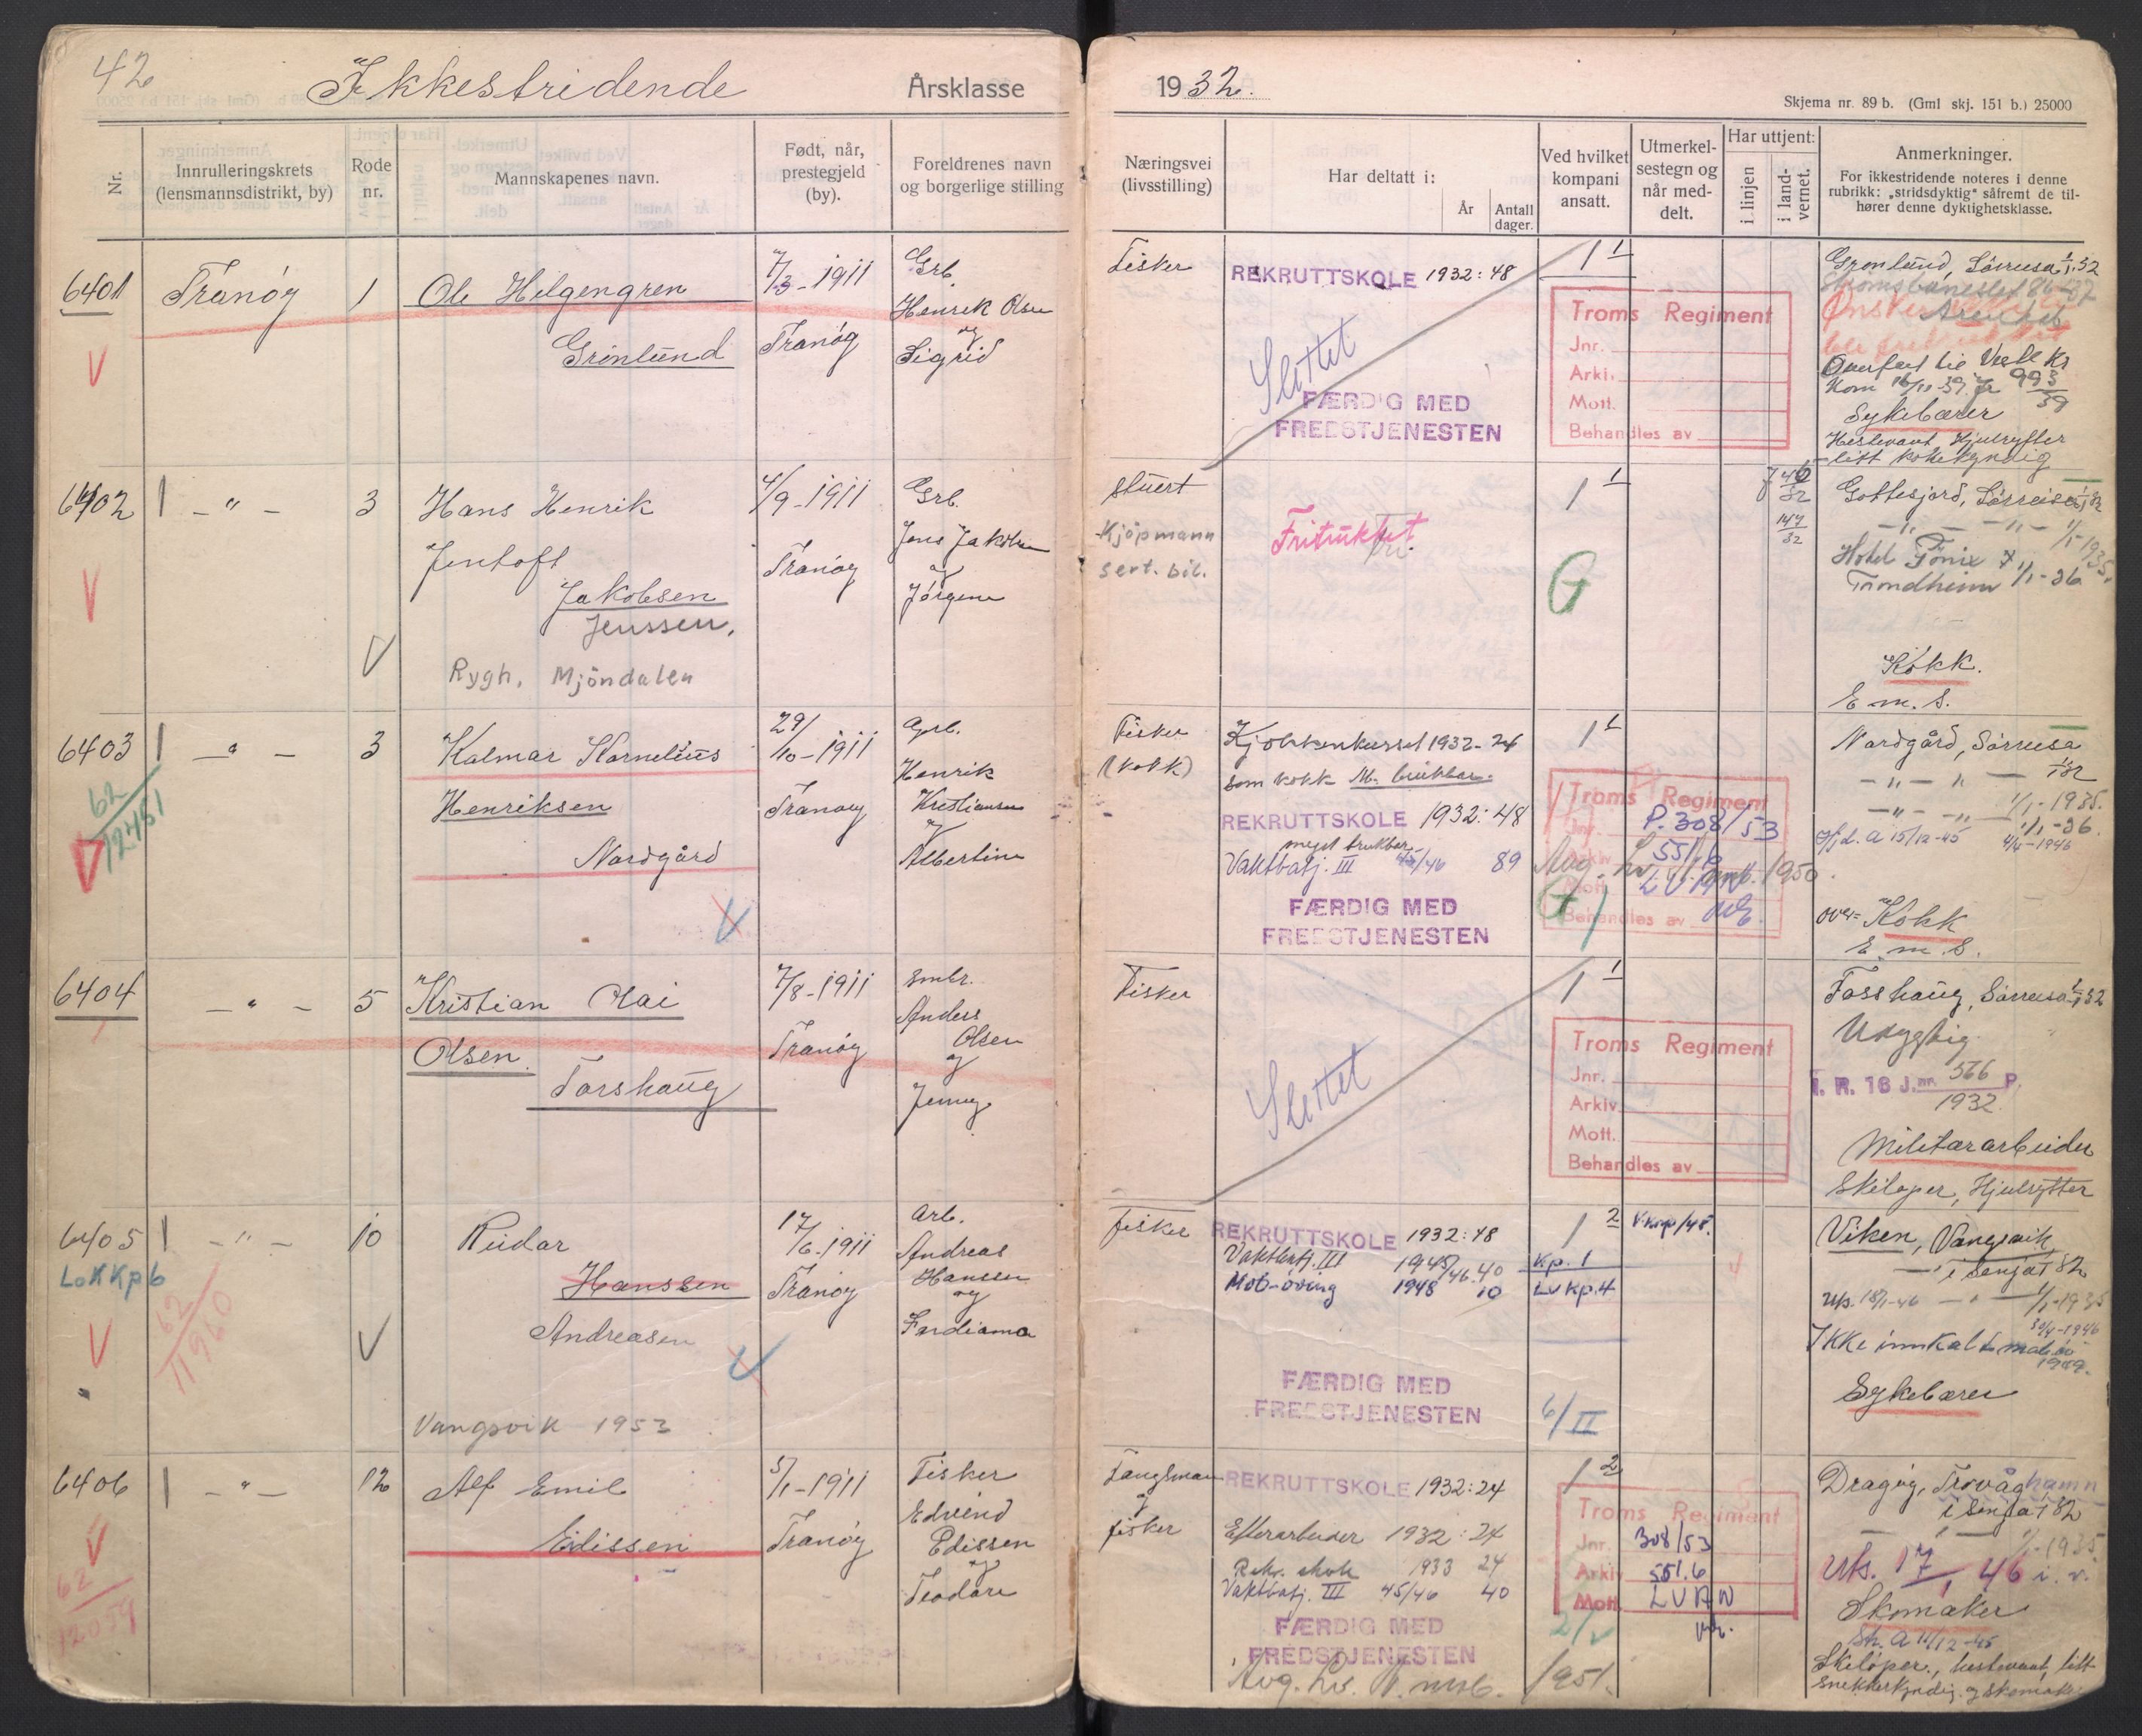 42
Ikkestridende
Årsklasse
1932.
Skjema nr. 89 b. (Gml skj. 151 b.) 25000
Nr.
Innrulleringskrets
(lensmannsdistrikt, by)
Rode
nr.
Mannskapenes navn.
Født, når,
prestegjeld
(by).
Foreldrenes navn
og borgerlige stilling
Næringsvei
(livsstilling)
Har deltatt i:
År
Antall
dager.
Ved hvilket
kompani
ansatt.
Utmerkel-
sestegn og
når med-
delt.
Har uttjent:
i linjen
i land-
vernet.
Anmerkninger.
For ikkestridende noteres i denne
rubrikk: „stridsdyktig“ såfremt de til-
hører denne dyktighetsklasse.
6401
Tranöy
1
Ole Helgengren
Grönlund
7/3-1911
Tranöy
Grb.
Henrik Olsen
og
Sigrid
Fisker
REKRUTTSKOLE 1932: 48
Slettet
FÆRDIG MED
FREDSTJENESTEN
1 1
Troms Regiment
Jnr.
Arkiv.
Mott.
Behandles av
Grönlund, Sörreisa 1/1 32
Overfört til
Kom 16/11-39. Jr 993/39
Sykebærer
Hestevant, Hjulrytter
litt kokekyndig
6402
— " —
3
Hans Henrik
Jentoft
Jakobsen
Jenssen.
Rygh, Mjöndalen
4/9-1911
Tranöy
Grb.
Jens Jakobsen
og
Jörgine
stuert
Kjöpmann
sert. bil.
Fritukket.
1 1
G
J 46/32
147/32
Gottesjord, Sörreisa 1/1 32
— " — — " — 1/1-1935
Hotel Fönix
Trondheim 1/1-36
Kokk.
E. m. S.
6403
— " —
3
62/12451
Kalmar Kornelius
Henriksen
Nordgård
29/10-1911
Tranöy
Henrik
Kristiansen
og
Albertine
Fisker
(kokk)
Kjökkenkurset 1932-24
som kokk M. brukbar.
REKRUTTSKOLE 1932: 48
meget brukbar
Vaktbatj. III 45/46 89
FÆRDIG MED
FREDSTJENESTEN
1 1
Troms Regiment
Jnr. P. 308/53
Arkiv 551.6
Mott. LVAN
Behandles av
1950.
Nordgård, Sörreisa
1/1 32
— " — " — 1/1-1935.
1/1-36.
15/12-45 4/4-1946
over= Kokk
E. m. S.
6404
— " —
5
Kristian Olai
Olsen.
Forshaug
7/8-1911
Tranöy
Smbr.
Anders
Olsen
og
Jenny
Fisker
Slettet
1 1
Troms Regiment
Jnr.
Arkiv.
Mott.
Behandles av
Forshaug, Sörreisa 1/1 32
Udygtig
I. R. 16 J.nr. 566/1932 P.
Militærarbeider
Skilöper, Hjulrytter
6405
— " —
10
LvKKp6
62/11960
Reidar
Hanssen
Andreasen
Vangsvik 1953
17/6-1911
Tranöy
Arb.
Andreas
Hansen
og
fisker
REKRUTTSKOLE 1932: 48
Vaktbatj. III 1945/46 40
Mob-öving 1948 10
FÆRDIG MED
FREDSTJENESTEN
1 2
Kp. 1
LvKp.4
6/II
Viken, Vangsvik
i Senja 1/1 32
1/1-1935
30/4-1946
Ikke innkalt mob.öv
1949.
Sykebærer
6406
— " —
12
62/12059
Alf Emil
Edissen
5/1-1911
Tranöy
Fisker
Edvend
Edissen
og
Teodora
Fangstmann
og
fisker
REKRUTTSKOLE 1932: 24
Efterarbeider 1932: 24
Rekr. skole 1933 24
Vaktbatj. III 45/46 40
FÆRDIG MED
FREDSTJENESTEN
Avg. Lv. 1951.
1 2
Troms Regiment
Jnr. 308/53
Arkiv 551.6
Mott. LVAN
Dragöy, Trovåghamn
i Senja 1/1 32
1/1-1935
Uts. 17/1 46 i. v.
Skomaker
Sk. A 11/12-45
Skilöper, hestevant, litt
snekkerkyndig og skomaker